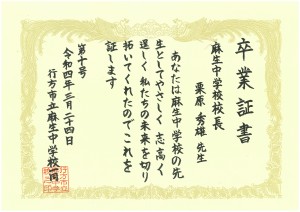 卒業証書
麻生中学校校長
栗原 秀雄 先生
あなたは麻生中学校の先
生としてやさしく 志高く
逞しく 私たちの未来を切り
拓いてくれたのでこれを
証します
第十号
令和四年三月二十四日
行方市立麻生中学校一同